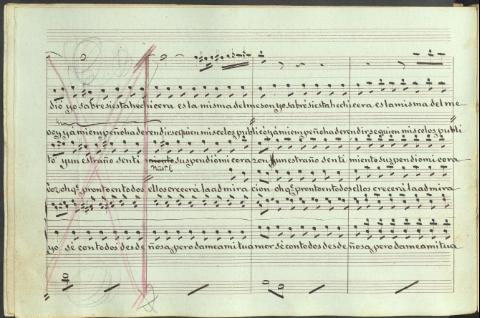 dió yo sabré si esta hechicera es la misma del meson, yo sabré si esta hechicera es la misma del me
y a mi empeño ha de rendirse quien mis celos publicó y a mi empeño ha de rendirse quien mis celos publi
tó y un estraño senti miento suspendió mi corazon, y un estraño senti miento suspendió mi cora
pronto en todos ellos crecerá la admira cion, pronto en todos ellos crecerá la admira
yo sé con todos desdeñosa, pero dame a mi tu amor sé con todos desdeñosa, pero dame a mi tua